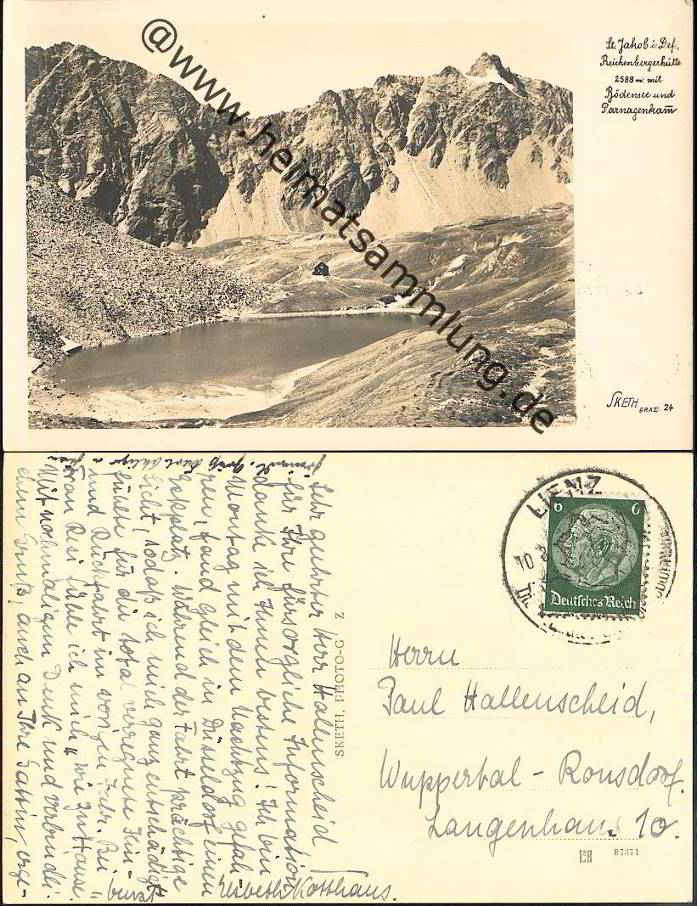 St. Jakob i. Def.
Reichenbergerhütte
2588 m. mit
Bödensee und
Panargenkamm
@www.heimatsammlung.de
SKETH GRAZ 24
LIENZ
10. 8.
6 6
Deutsches Reich
Herrn
Paul Hallenscheid,
Wuppertal - Ronsdorf.
Langenhaus 10.
87371
SKETH, PHOTO-G Z
Sehr geehrter Herr Hallenscheid
für Ihre fürsorgliche Information
danke ich Ihnen bestens! Ich bin
Montag mit dem Nachtzug gefah-
ren, fand gleich in Düsseldorf einen
Eckplatz. Während der Fahrt prächtige
Sicht, sodaß ich mich ganz entschädigt
fühlte für die total verregnete Hin-
und Rückfahrt im vorigen Jahr. Bei
Frau fühle ich mich "wie zu Hause."
Mit nochmaligem Dank und verbindli-
chem Gruß, auch an Ihre Gattin, erge-
benst Elisbeth Kotthaus.
Gruß